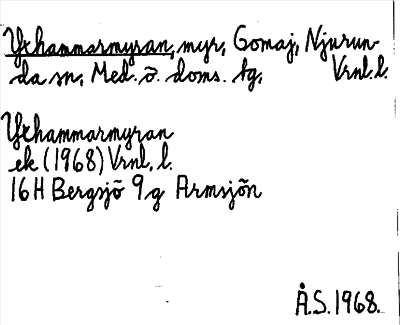 Yxhammarmyran, myr, Gomaj, Njurun-
da sn, Med. ö. doms. tg, Vrnl. l.
Yxhammarmyran
ek (1968) Vrnl. l.
16H Bergsjö 9g Armsjön
Å.S. 1968.